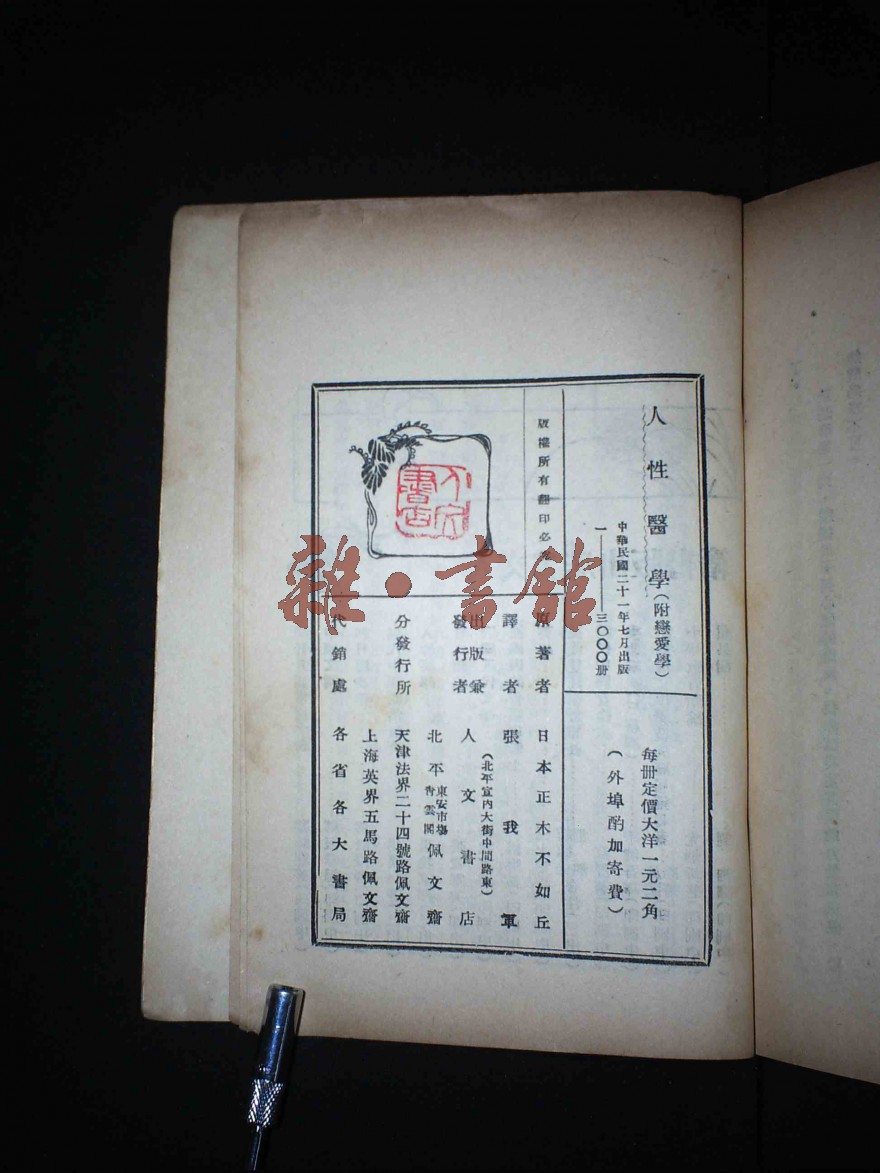 人性醫學(附戀愛學)
中華民國二十一年七月出版
一——三〇〇〇册
每冊定價大洋一元二角
(外埠酌加寄費)
版權所有翻印必
原著者 日本正木不如丘
譯者 張我軍
出版兼發行者 人文書店
(北平宣內大街中間路東)
分發行所
北平東安市場青雲閣佩文齋
天津法界二十四號路佩文齋
上海英界五馬路佩文齋
代銷處 各省各大書局
人文書店
雜·書館